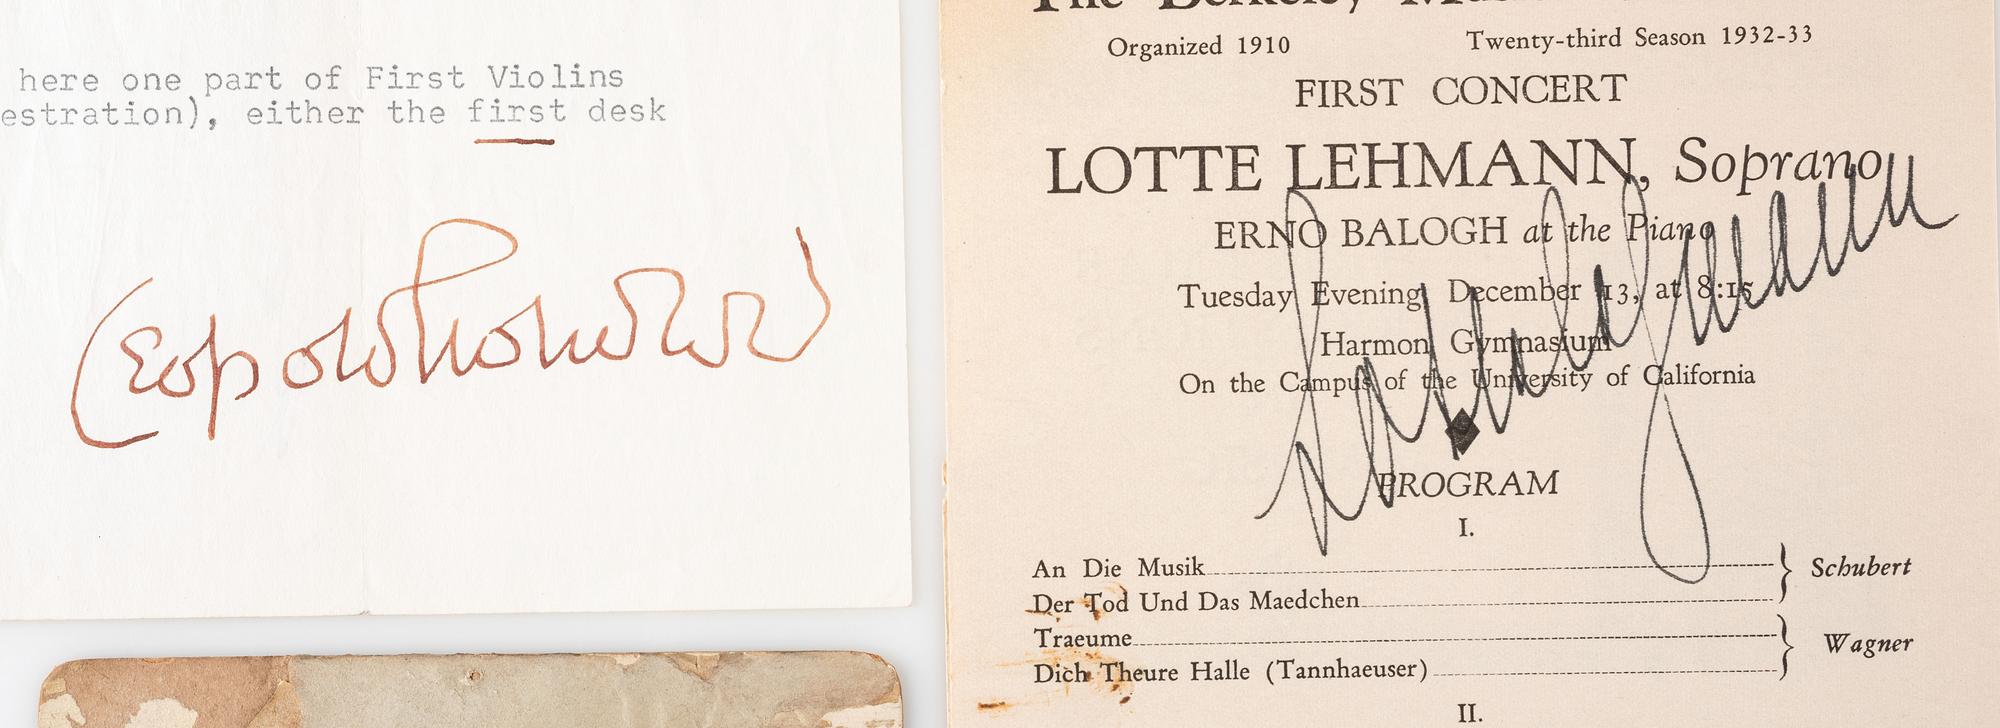 here one part of First Violins
estration), either the first desk
Leopold Stokowski
The Berkeley
Organized 1910 Twenty-third Season 1932-33
FIRST CONCERT
LOTTE LEHMANN, Soprano
ERNO BALOGH at the Piano
Tuesday Evening, December 13, at 8:15
Harmon Gymnasium
On the Campus of the University of California
Lotte Lehmann
PROGRAM
I.
An Die Musik
Der Tod Und Das Maedchen
Schubert
Traeume
Dich Theure Halle (Tannhaeuser)
Wagner
II.